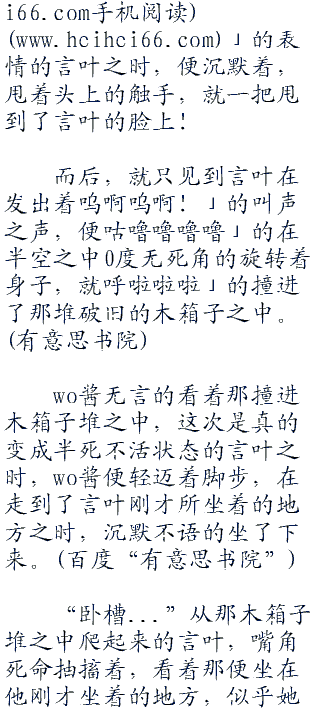 i66.com手机阅读)
(www.hcihci66.com)」的表
情的言叶之时，便沉默着，
甩着头上的触手，就一把甩
到了言叶的脸上！
而后，就只见到言叶在
发出着呜啊呜啊！」的叫声
之声，便咕噜噜噜噜」的在
半空之中0度无死角的旋转着
身子，就呼啦啦啦」的撞进
了那堆破旧的木箱子之中。
(有意思书院)
wo酱无言的看着那撞进
木箱子堆之中，这次是真的
变成半死不活状态的言叶之
时，wo酱便轻迈着脚步，在
走到了言叶刚才所坐着的地
方之时，沉默不语的坐了下
来。(百度“有意思书院”)
“卧槽...”从那木箱子
堆之中爬起来的言叶，嘴角
死命抽搐着，看着那便坐在
他刚才坐着的地方，似乎她